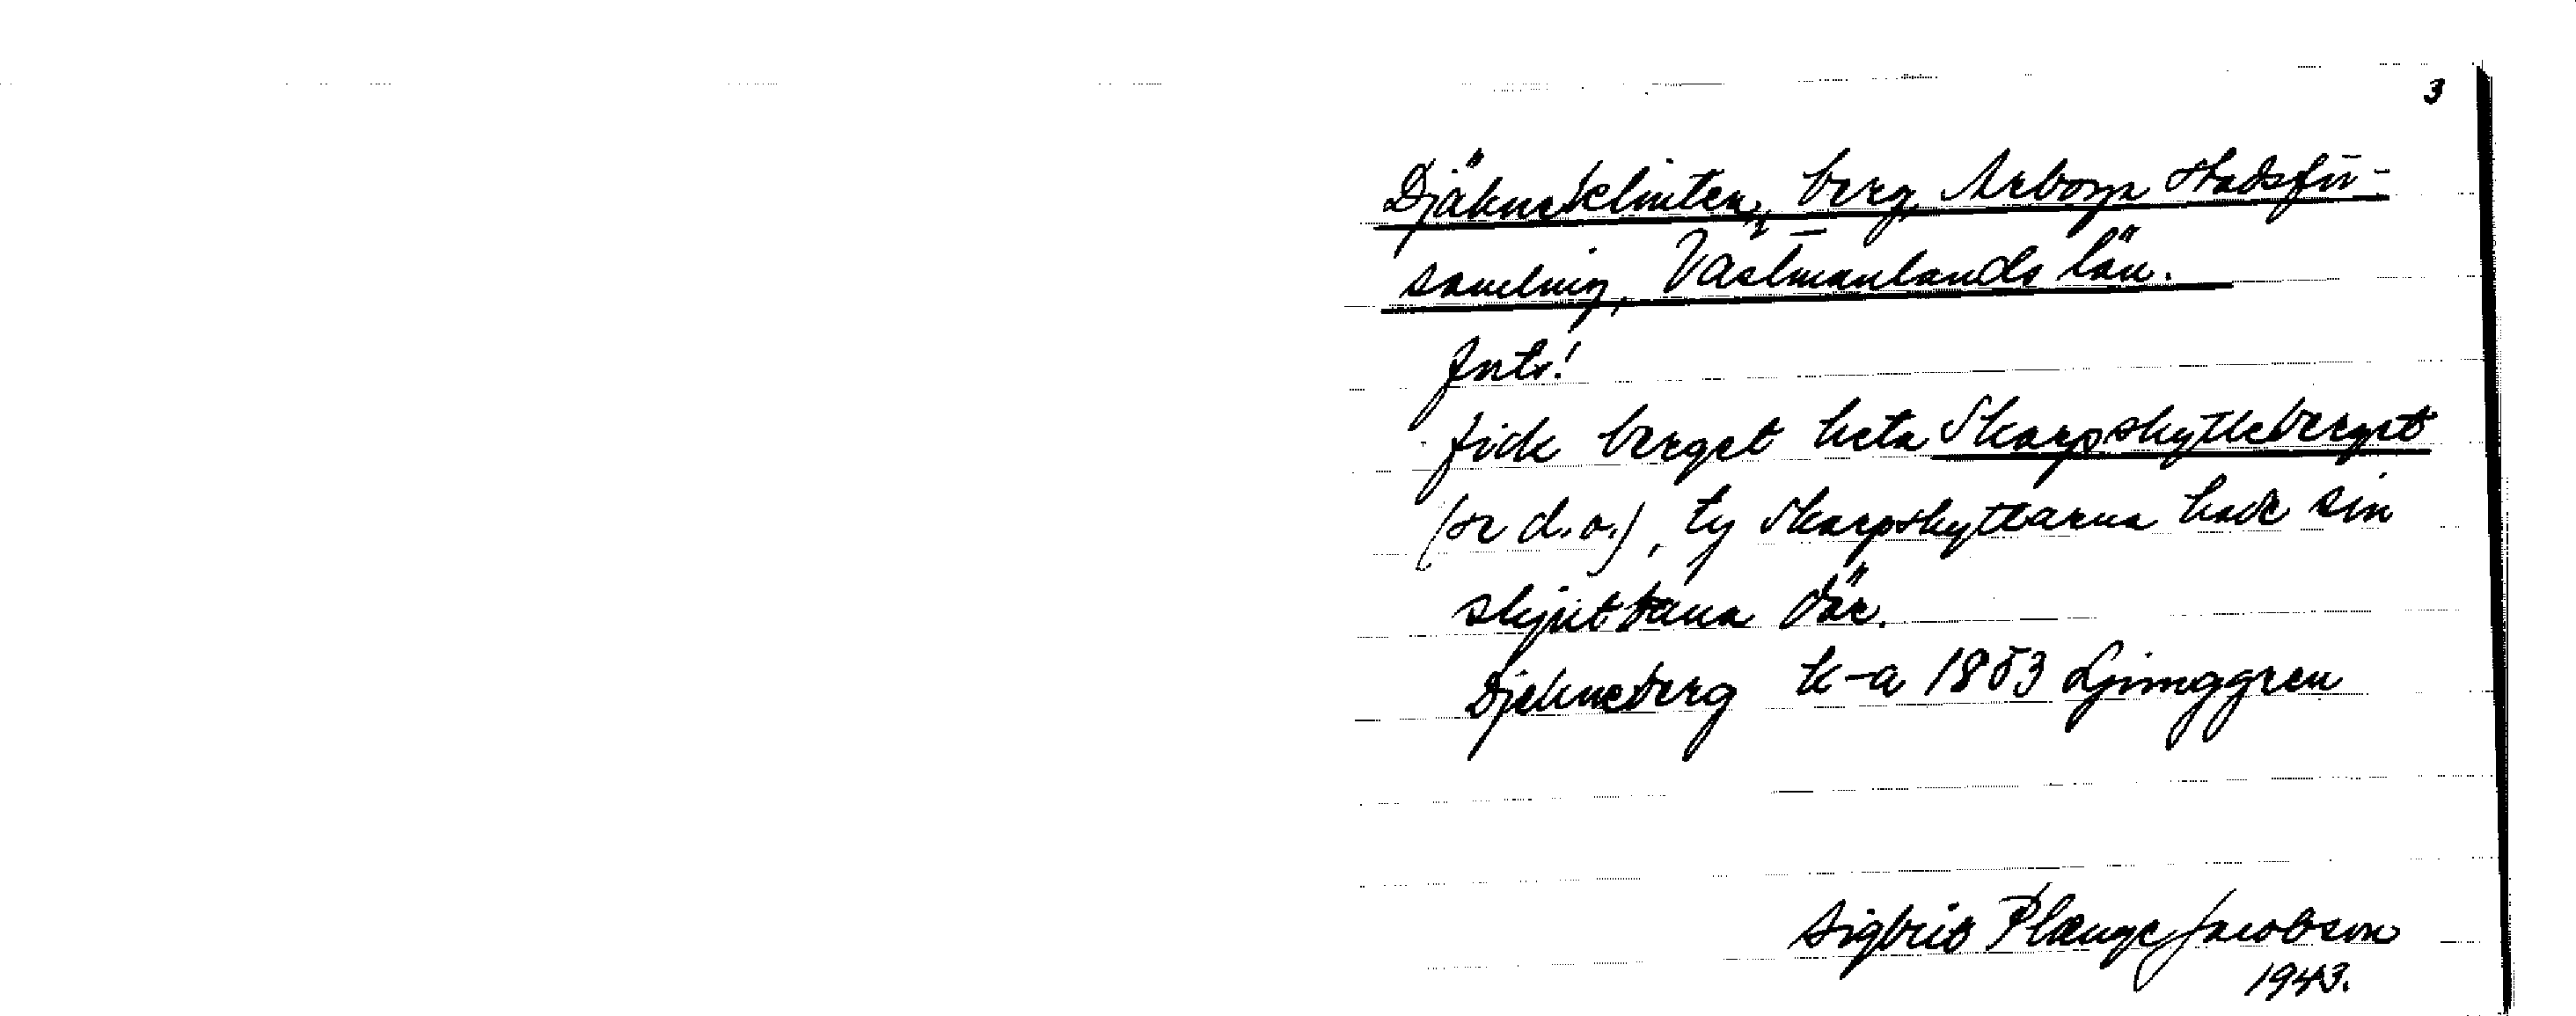 3
Djäkneklinten, berg, Arboga stadsför-
samling, Västmanlands län.
Forts!
fick berget heta Skarpskytteberget
(se d.o.), ty skarpskyttarna hade sin
skjutbana där.
Djekneberg k-a 1853 Ljunggren
Sigbrit Plænge Jacobson
1943.